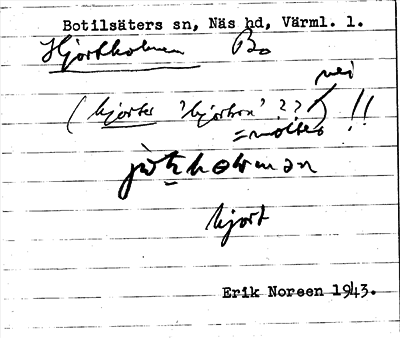 Botilsäters sn, Näs hd, Värml. l.
Hjortholmen Bo
nei
(hjorter 'hjortron' ?? !!
= moltes
hjort
Erik Noreen 1943.